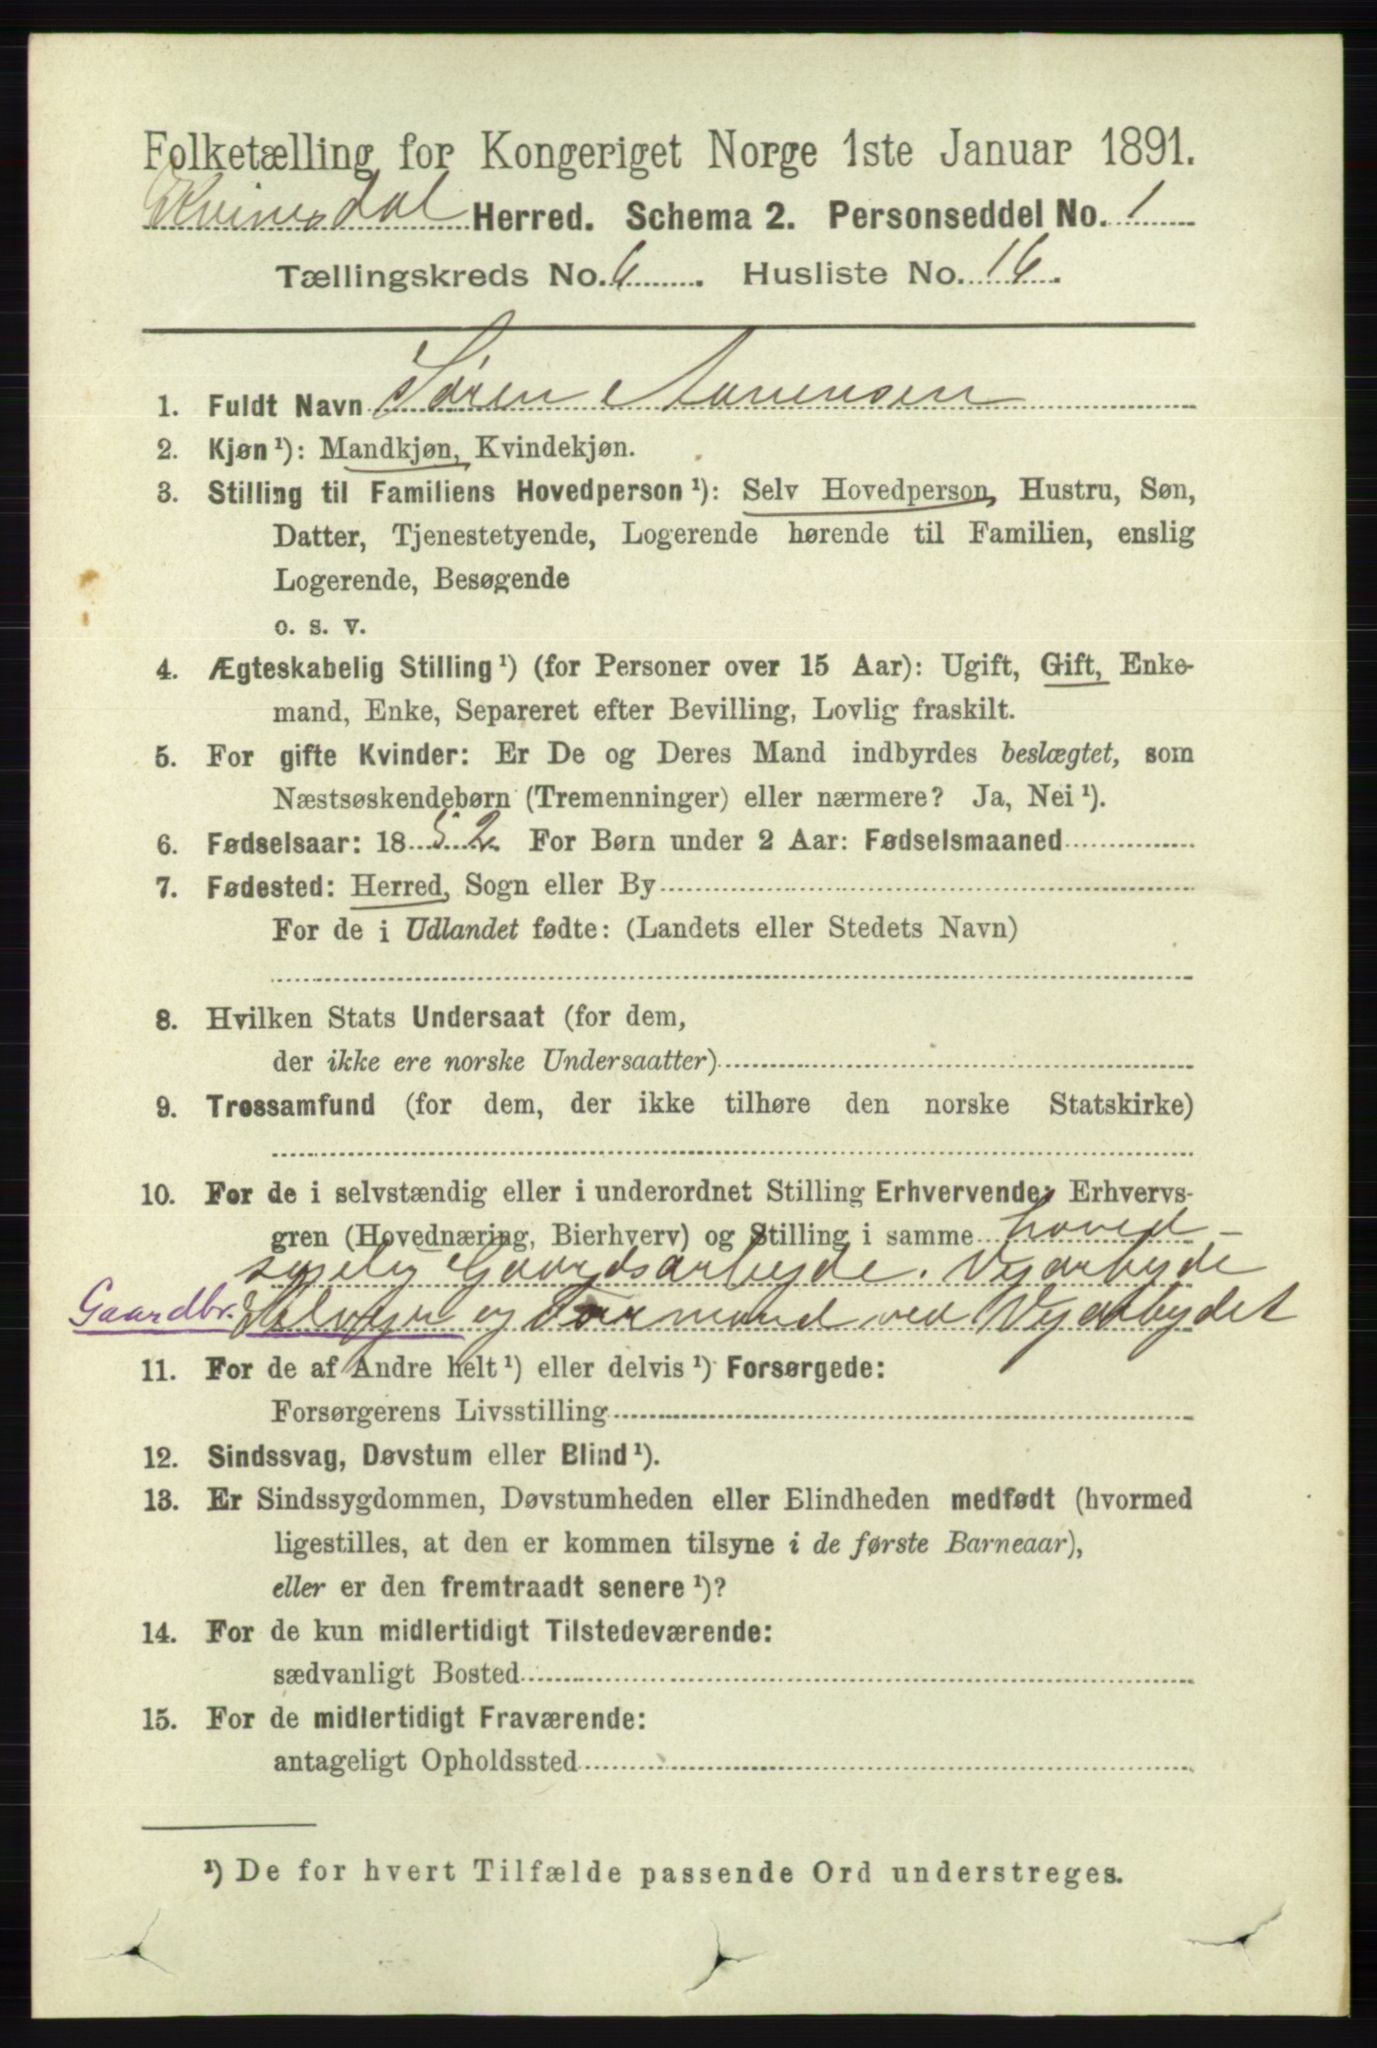 Folketælling for Kongeriget Norge 1ste Januar 1891.
Kvinesdal Herred. Schema 2. Personseddel No. 1
Tællingskreds No. 6. Husliste No. 16.
1. Fuldt Navn Søren Aanensen
2. Kjøn ¹): Mandkjøn, Kvindekjøn.
3. Stilling til Familiens Hovedperson ¹): Selv Hovedperson, Hustru, Søn,
Datter, Tjenestetyende, Logerende hørende til Familien, enslig
Logerende, Besøgende
o. s. v.
4. Ægteskabelig Stilling ¹) (for Personer over 15 Aar): Ugift, Gift, Enke-
mand, Enke, Separeret efter Bevilling, Lovlig fraskilt.
5. For gifte Kvinder: Er De og Deres Mand indbyrdes beslægtet, som
Næstsøskendebørn (Tremenninger) eller nærmere? Ja, Nei ¹).
6. Fødselsaar: 1852. For Børn under 2 Aar: Fødselsmaaned
7. Fødested: Herred, Sogn eller By
For de i Udlandet fødte: (Landets eller Stedets Navn)
8. Hvilken Stats Undersaat (for dem,
der ikke ere norske Undersaatter)
9. Trossamfund (for dem, der ikke tilhøre den norske Statskirke)
10. For de i selvstændig eller i underordnet Stilling Erhvervende: Erhvervs-
gren (Hovednæring, Bierhverv) og Stilling i samme hoved-
syslig Gaardsarbeyde. Vejarbyde
Gaardbr. Selvejer og Formand ved Vejarbydet
11. For de af Andre helt ¹) eller delvis ¹) Forsørgede:
Forsørgerens Livsstilling
12. Sindssvag, Døvstum eller Blind ¹).
13. Er Sindssygdommen, Døvstumheden eller Blindheden medfødt (hvormed
ligestilles, at den er kommen tilsyne i de første Barneaar),
eller er den fremtraadt senere ¹)?
14. For de kun midlertidigt Tilstedeværende:
sædvanligt Bosted
15. For de midlertidigt Fraværende:
antageligt Opholdssted
¹) De for hvert Tilfælde passende Ord understreges.